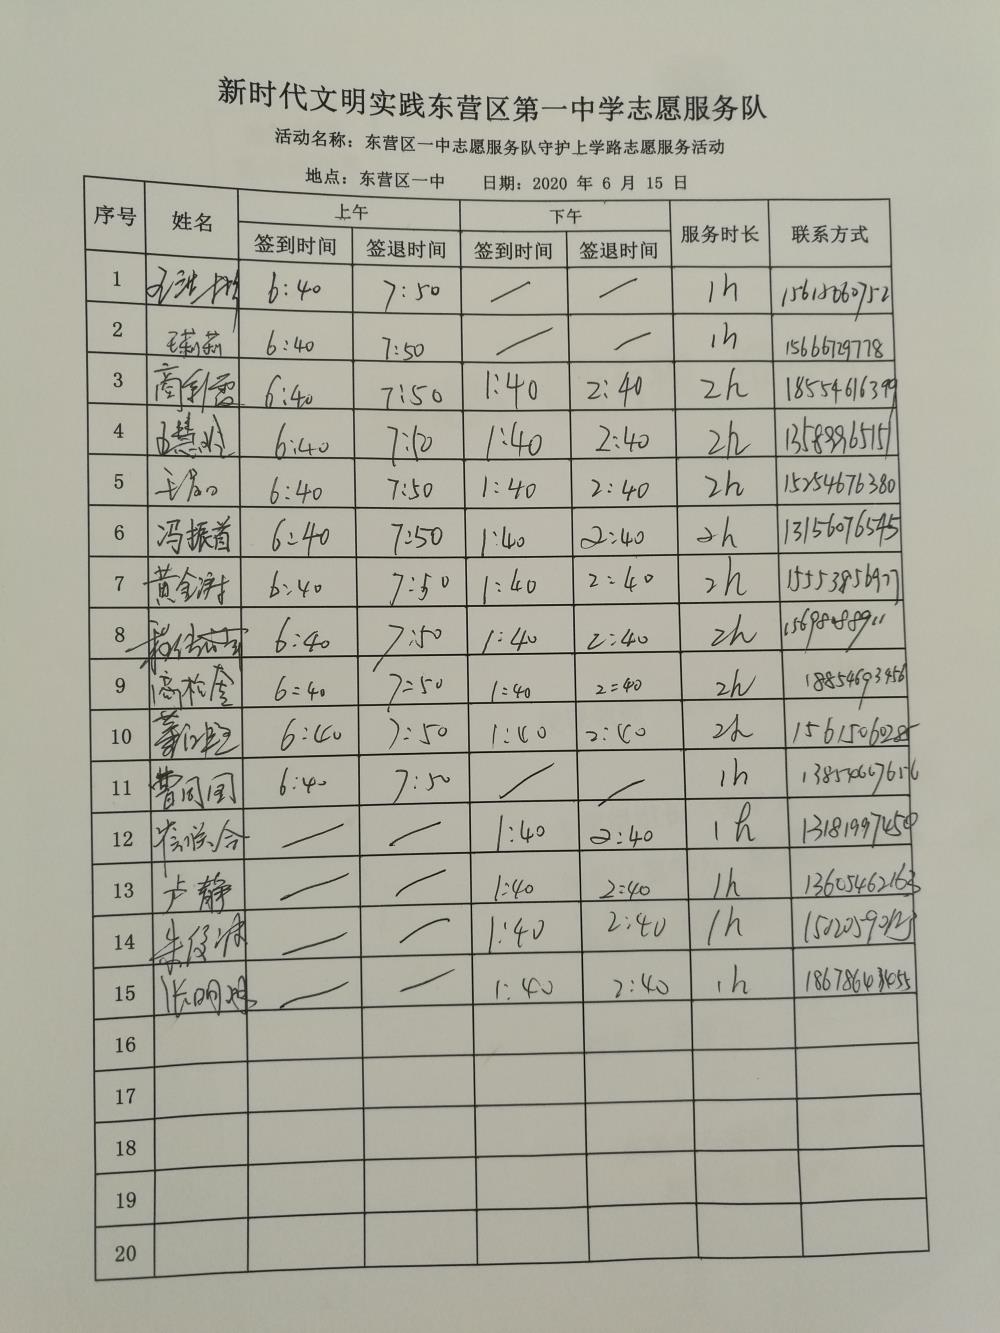 新时代文明实践东营区第一中学志愿服务队
活动名称：东营区一中志愿服务队守护上学路志愿服务活动
地点：东营区一中 日期：2020 年 6 月 15 日
序号 姓名 上午 下午 服务时长 联系方式
签到时间 签退时间 签到时间 签退时间
1 6:40 7:50 — — 1h
2 王莉莉 6:40 7:50 — — 1h 15666729778
3 6:40 7:50 1:40 2:40 2h 18554616399
4 6:40 7:50 1:40 2:40 2h
5 6:40 7:50 1:40 2:40 2h 15254676380
6 冯振首 6:40 7:50 1:40 2:40 2h 13156076545
7 6:40 7:50 1:40 2:40 2h
8 6:40 7:50 1:40 2:40 2h
9 6:40 7:50 1:40 2:40 2h 18854693456
10 6:40 7:50 1:40 2:40 2h 15615060285
11 曹同国 6:40 7:50 — — 1h
12 — — 1:40 2:40 1h 13181997450
13 卢静 — — 1:40 2:40 1h 13605462163
14 — — 1:40 2:40 1h
15 — — 1:40 2:40 1h
16
17
18
19
20